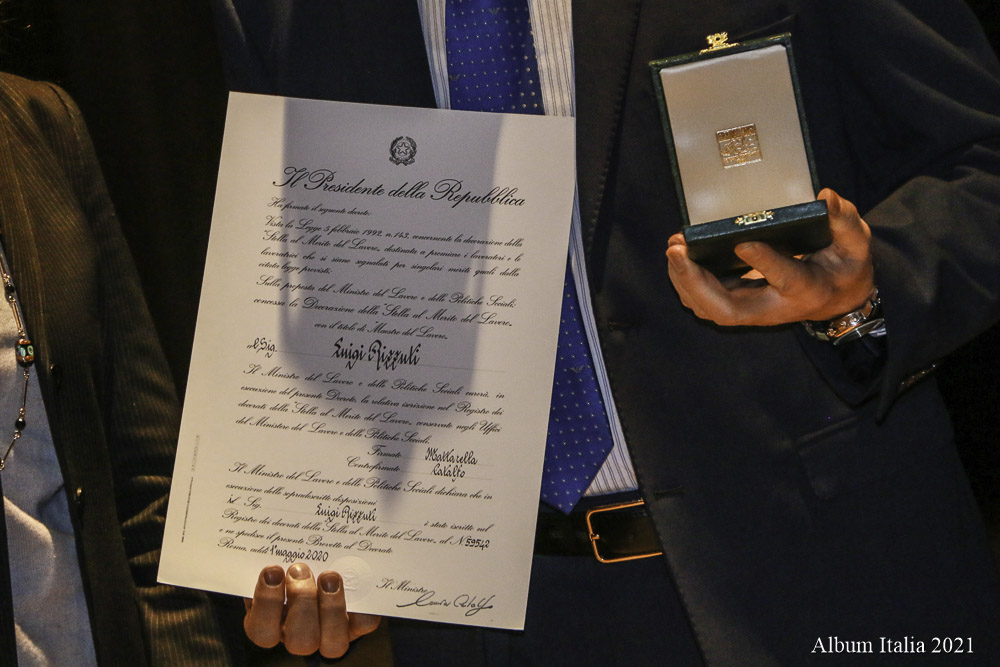 Il Presidente della Repubblica
Ha firmato il seguente decreto:
Vista la Legge 5 febbraio 1992, n. 143, concernente la decorazione della
"Stella al Merito del Lavoro", destinata a premiare i lavoratori e le
lavoratrici che si siano segnalati per singolari meriti quali dalla
citata legge previsti;
Sulla proposta del Ministro del Lavoro e delle Politiche Sociali;
concessa la Decorazione della "Stella al Merito del Lavoro"
con il titolo di Maestro del Lavoro,
al Sig. Luigi Rizzuli
Il Ministro del Lavoro e delle Politiche Sociali curerà, in
esecuzione del presente Decreto, la relativa iscrizione nel Registro dei
decorati della "Stella al Merito del Lavoro", conservato negli Uffici
del Ministero del Lavoro e delle Politiche Sociali.
Firmato Mattarella
Controfirmato Catalfo
Il Ministro del Lavoro e delle Politiche Sociali dichiara che in
esecuzione delle sopradescritte disposizioni
il Sig. Luigi Rizzuli è stato iscritto nel
Registro dei decorati della "Stella al Merito del Lavoro", al N. 59542
e ne spedisce il presente Brevetto al Decorato
Roma, addì 1° maggio 2020
Il Ministro
Album Italia 2021